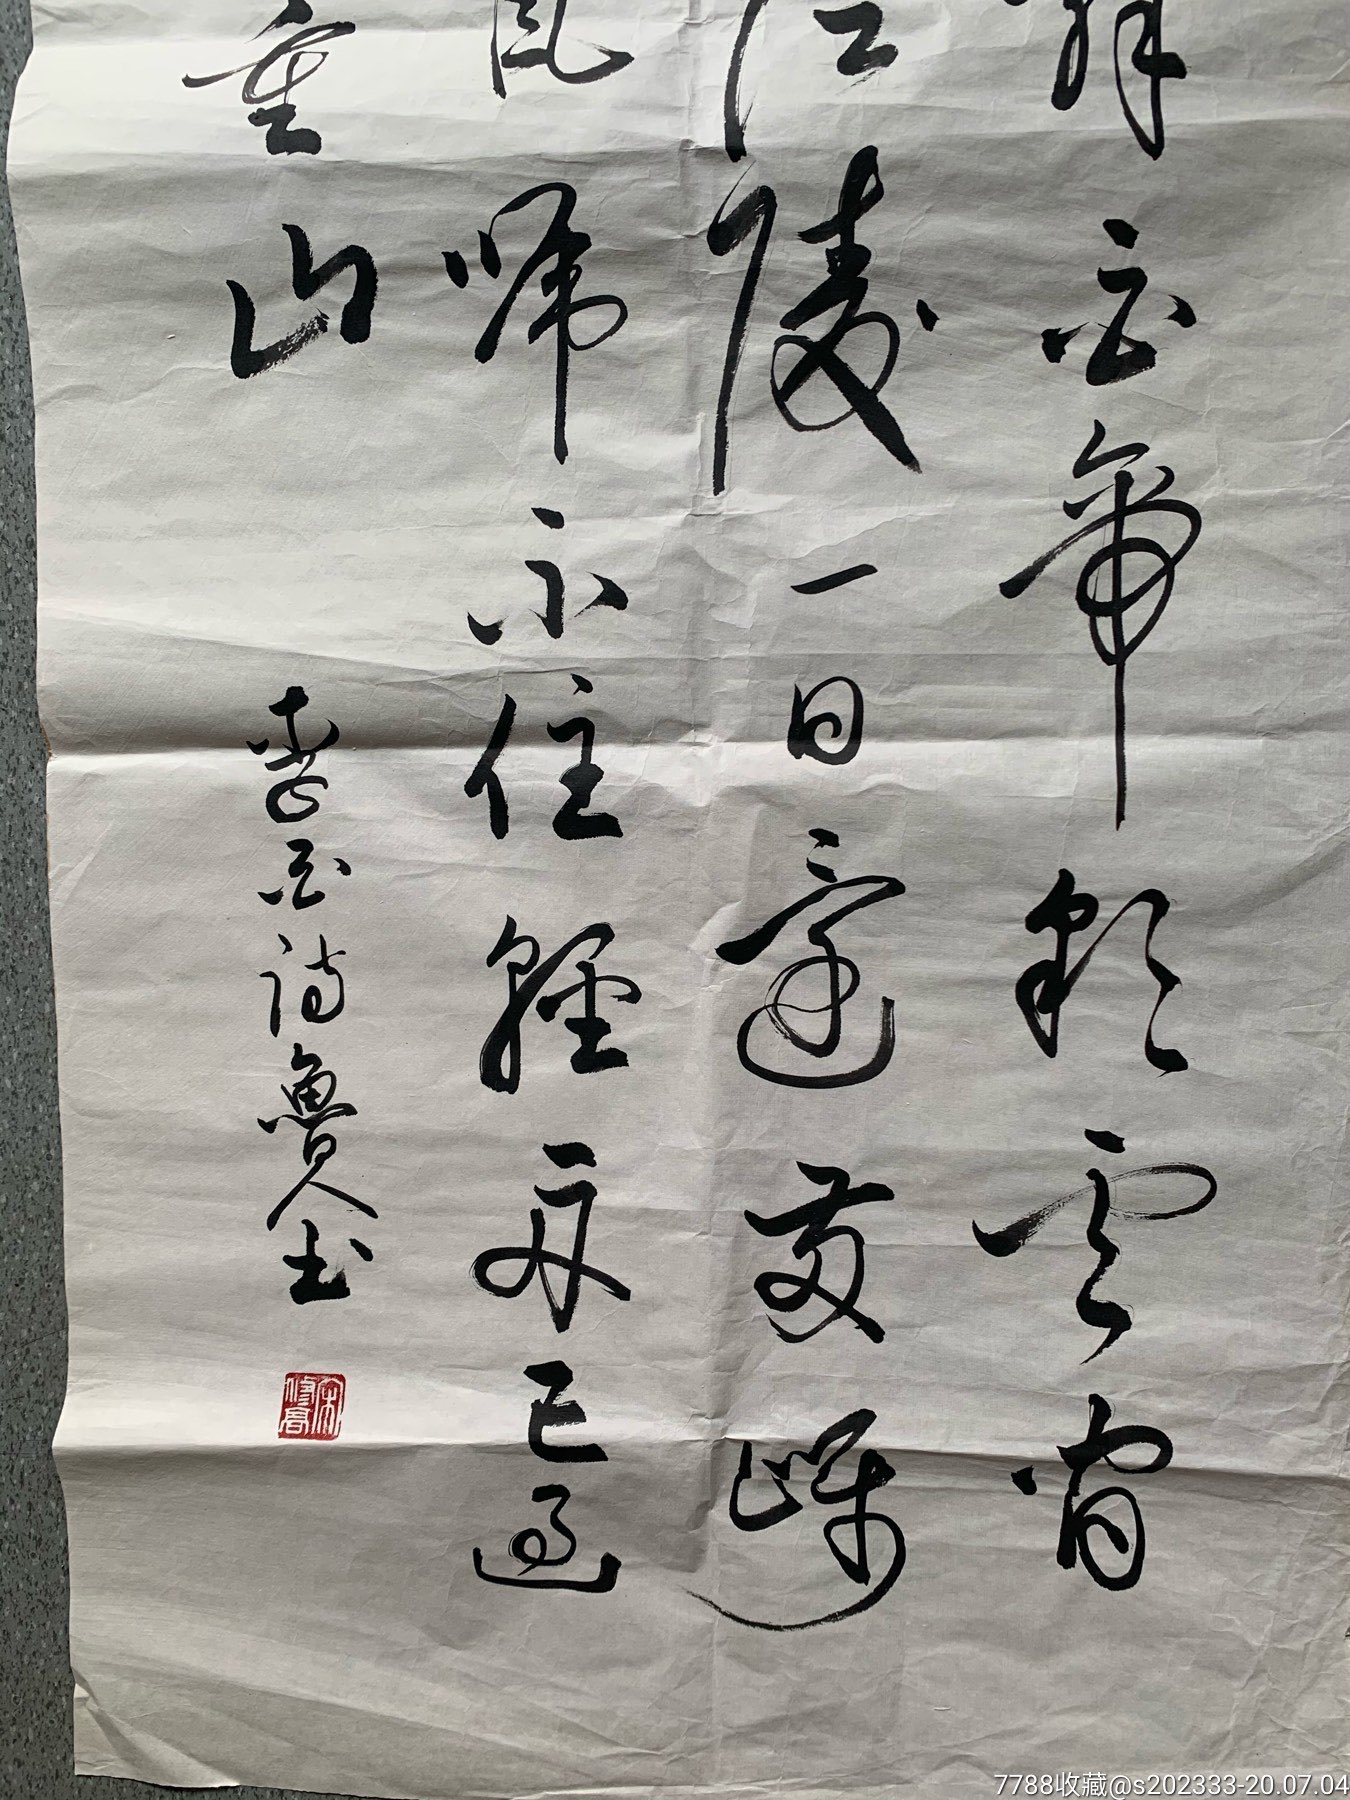 辞白帝彩云間
江陵一日還兩岸
聲啼不住輕舟已過
重山
李白诗魯人书
7788收藏@s202333-20.07.04